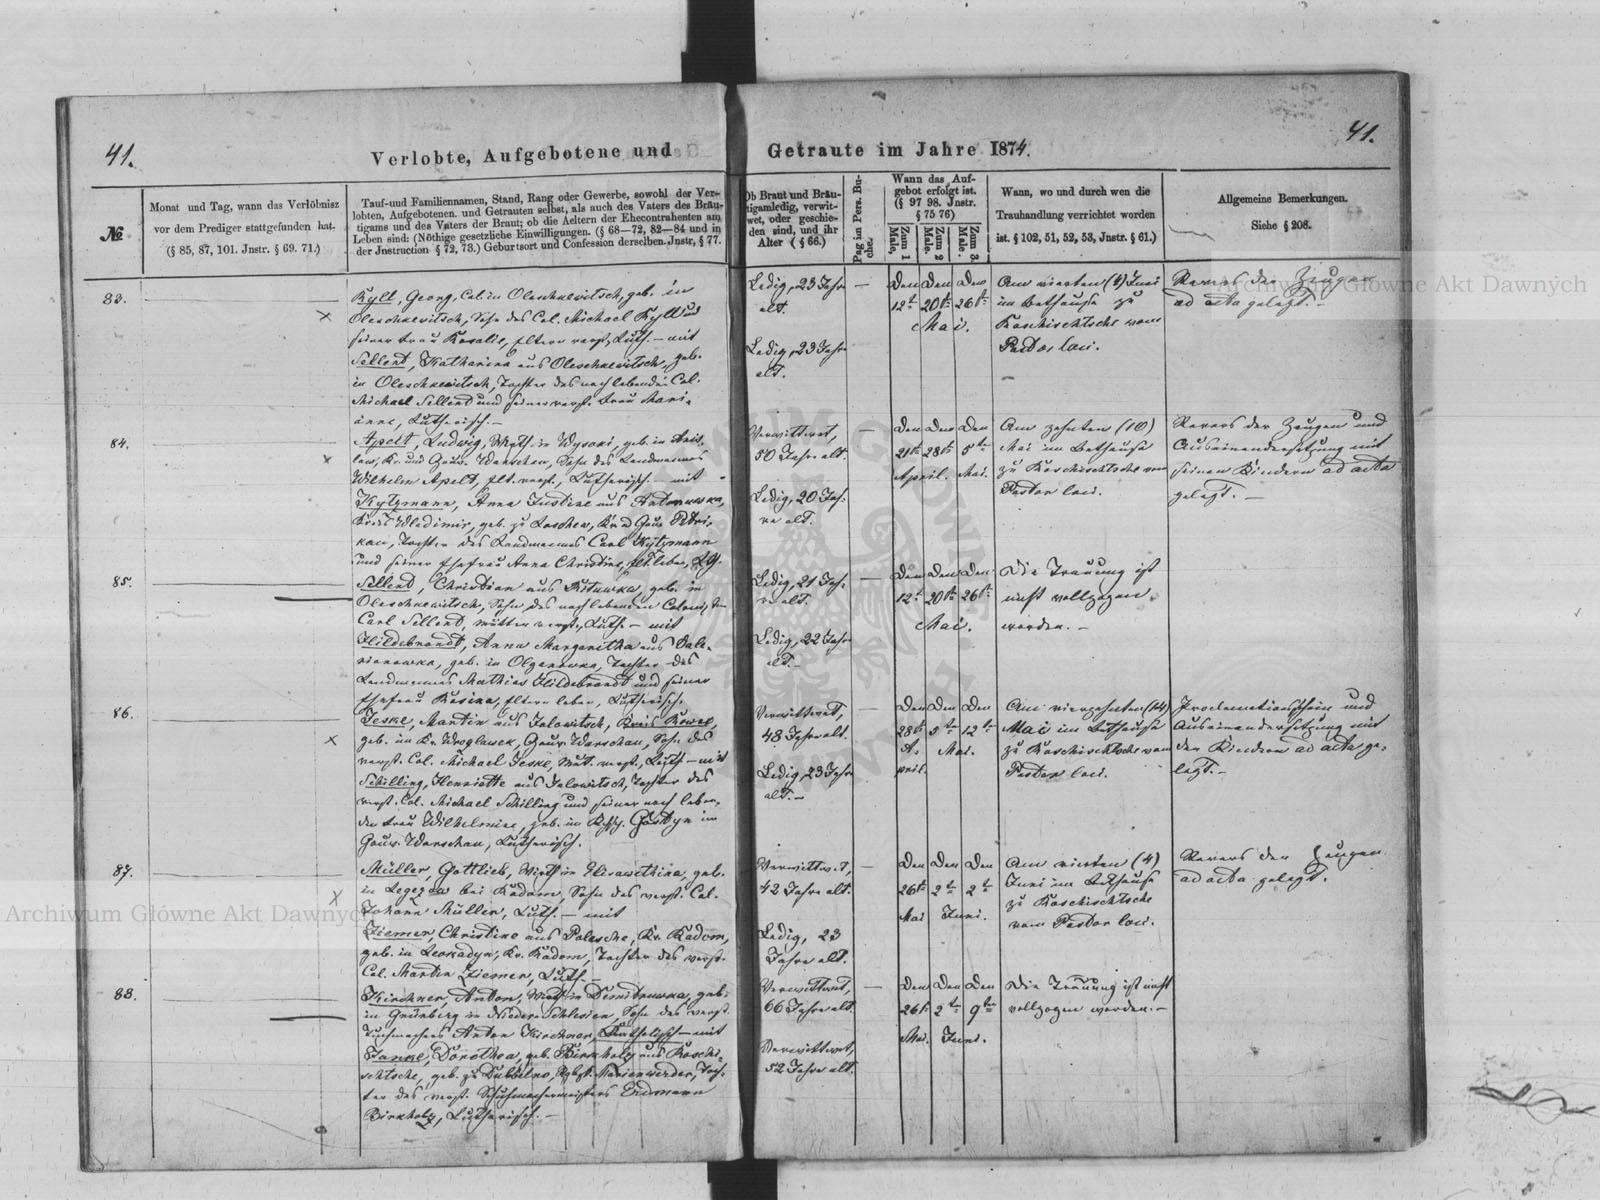 41.
41.
Verlobte, Aufgebotene und
Getraute im Jahre 1874.
№
Monat und Tag, wann das Verlöbnisz
vor dem Prediger stattgefunden hat.
(§ 85, 87, 101. Jnstr. § 69. 71.)
Tauf-uud Familiennamen, Stand, Rang oder Gewerbe, sowohl der Ver-
lobten, Aufgebotenen. und Getrauten selbst, als auch des Vaters des Bräu-
tigams und des Vaters der Braut; ob die Aeltern der Ehecontrahenten am
Leben sind: (Nöthige gesetzliche Einwilligungen. (§ 68—72, 82—84 und in
der Jnstruction § 72, 73.) Geburtsort und Confession derselben. Jnstr. § 77.
Ob Braut und Bräu-
tigam ledig, verwit-
wet, oder geschie-
den sind, und ihr
Alter ( § 66.)
Pag im Pers. Bu-
che.
Wann das Auf-
gebot erfolgt ist.
(§ 97 98. Jnstr.
§ 75 76)
Zum 1 Male.
Zum 2 Male.
Zum 3 Male.
Wann, wo und durch wen die
Trauhandlung verrichtet worden
ist. § 102, 51, 52, 53, Jnstr. § 61.)
Allgemeine Bemerkungen.
Siehe § 208.
83.
Kyll, Georg, Col. in Oleschkewitsch, geb. in
Oleschkewitsch, Sohn des Col. Michael Kyll und
seiner Frau Rosalie, Eltern verst., Luth. — mit
Sellend, Katharina aus Oleschkewitsch, geb.
in Oleschkewitsch, Tochter des noch lebenden Col.
Michael Sellend und seiner verst. Frau Mari-
anne, Lutherisch. —
Ledig, 23 Jahre
alt.
Ledig, 23 Jahre
alt.
Den Den Den
12t 20t 26t
Mai.
Am vierten (4) Juni
im Bethause zu
Roschischtsche vom
Pastor loci.
Revers der Zeugen
ad acta gelegt. —
84.
Apelt, Ludwig, Wirth in Wysoki, geb. in
Kr. und Gouv. Warschau, Sohn des Landmannes
Wilhelm Apelt, Elt. verst., Lutherisch. — mit
Kytzmann, Anna Justine aus Antonuwka,
Kreis Wladimir, geb. zu Kr. u Gouv. Petri-
kau, Tochter des Landmannes Carl Kytzmann
und seiner Ehefrau Anna Christine, Elt. leben,
Verwittwet,
50 Jahre alt.
Ledig, 20 Jah-
re alt.
Den Den Den
21t 28t 5te
April. Mai.
Am zehnten (10)
Mai im Bethause
zu Roschischtsche vom
Pastor loci.
Revers der Zeugen und
Auseinandersetzung mit
seinen Kindern ad acta
gelegt. —
85.
Sellend, Christian aus geb. in
Oleschkewitsch, Sohn des noch lebenden
Carl Sellend, Mutter verst., Luth. — mit
Hildebrandt, Anna Margaretha aus Vale-
rianowka, geb. in Olganowka, Tochter des
Landmannes Mathias Hildebrandt und seiner
Ehefrau Rosina, Eltern leben, Lutherisch.
Ledig, 21 Jah-
re alt.
Ledig, 22 Jahre
alt. —
Den Den Den
12t 20t 26t
Mai.
Die Trauung ist
nicht vollzogen
worden. —
86.
Jeske, Martin aus Jalowitsch, Kreis Kowel,
geb. im Kr. Wroglawek, Gouv. Warschau, Sohn des
verst. Col. Michael Jeske, Mut. verst., Luth. — mit
Schilling, Henriette aus Jalowitsch, Tochter des
verst. Col. Michael Schilling und seiner noch leben-
den Frau Wilhelmine, geb. im Gostyn im
Gouv. Warschau, Lutherisch.
Verwittwet,
48 Jahre alt.
Ledig, 23 Jahre
alt. —
Den Den Den
28t 5te 12te
A- Mai.
pril.
Am vierzehnten (14)
Mai im Bethause
zu Roschischtsche vom
Pastor loci.
Proclamationsschein und
Auseinandersetzung mit
den Kindern ad acta ge-
legt. —
87.
Müller, Gottlieb, Wirth in Elisawethina, geb.
in bei Radom, Sohn des verst. Col.
Johann Müller, Luth. — mit
Ziemer, Christine aus Polesche, Kr. Radom,
geb. in Leokadyn, Kr. Radom, Tochter des verst.
Col. Martin Ziemer, Luth. —
Verwittwet,
42 Jahre alt.
Ledig, 23
Jahre alt.
Den Den Den
26t 2te 2te
Mai Juni.
Am vierten (4)
Juni im Bethause
zu Roschischtsche
vom Pastor loci.
Revers der Zeugen
ad acta gelegt.
88.
Kirchner, Anton, Wirth in Dimitruwka, geb.
in Grünberg in Nieder-Schlesien, Sohn des verst.
Tuchmachers Anton Kirchner, Katholisch — mit
Janke, Dorothea, geb. Birkholz aus Roschi-
schtsche, geb. zu Dubbelno, Rgbzt. Marienwerder, Toch-
ter des verst. Schuhmachermeisters Erdmann
Birkholz, Lutherisch. —
Verwittwet,
66 Jahre alt.
Verwittwet,
52 Jahre alt.
Den Den Den
26t 2te 9te
Mai. Juni.
Die Trauung ist nicht
vollzogen worden. —
Archiwum Główne Akt Dawnych
Archiwum Główne Akt Dawnych